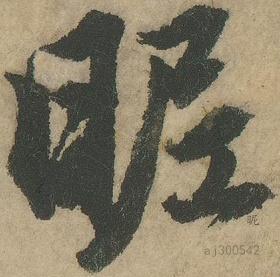 眤
昵
aj300542